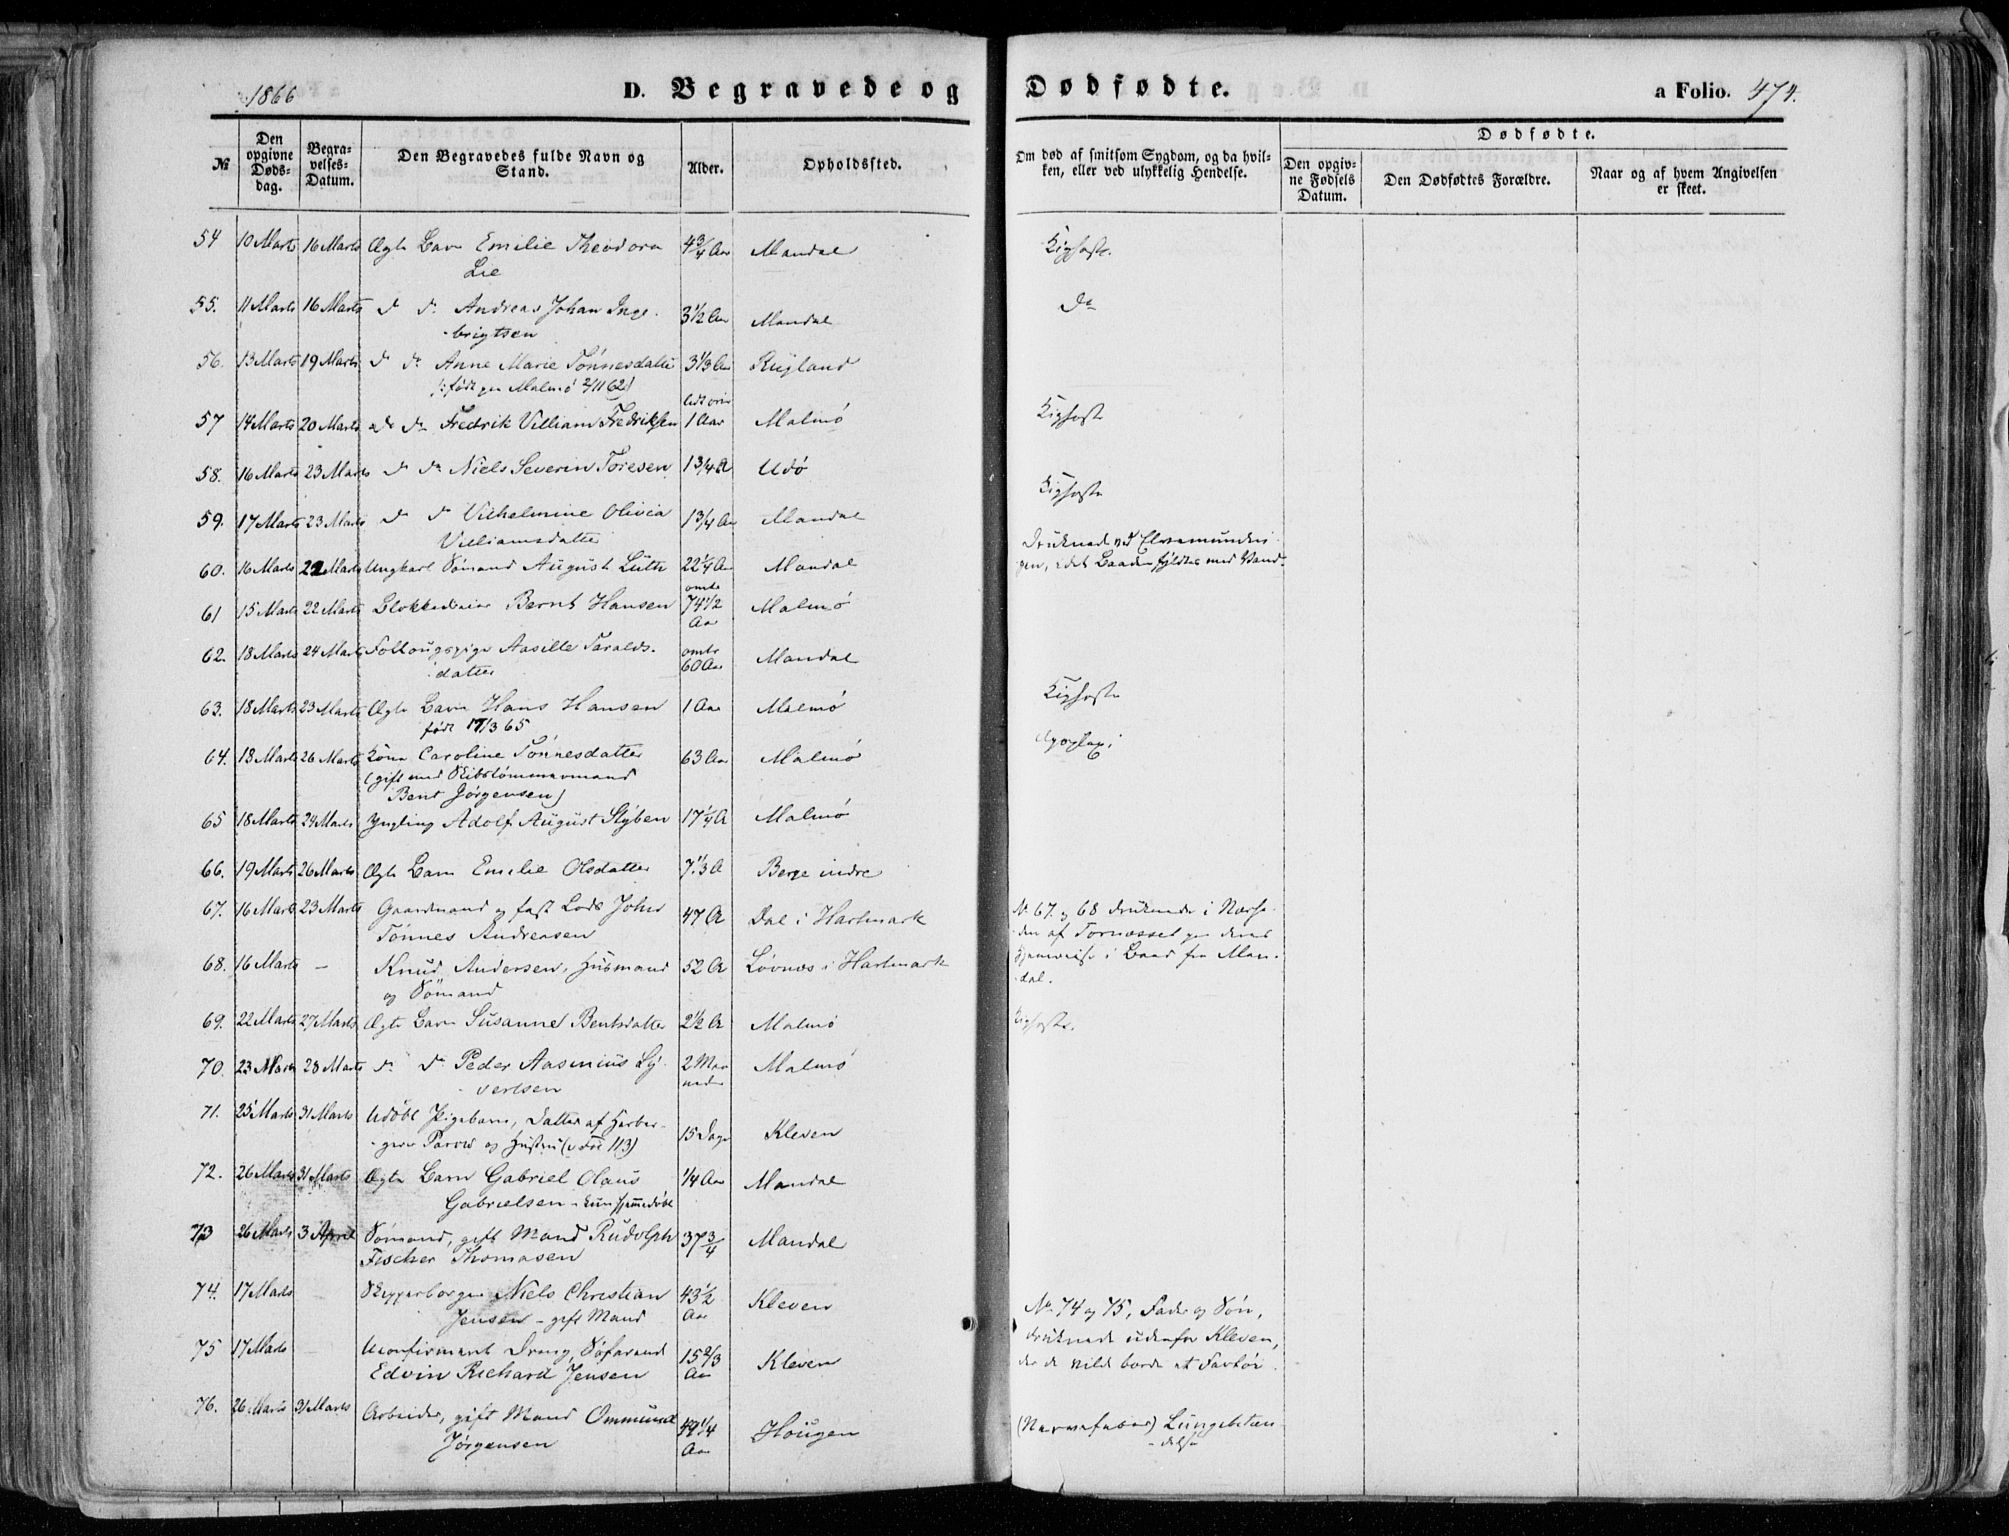 1866
D. Begravede og Dødfødte.
a Folio. 474.
№
Den opgivne Døds-dag.
Begra-velses-Datum.
Den Begravedes fulde Navn og Stand.
Alder.
Opholdssted.
Om død af smitsom Sygdom, og da hvil-ken, eller ved ulykkelig Hendelse.
Dødfødte.
Den opgiv-ne Fødsels Datum.
Den Dødfødtes Forældre.
Naar og af hvem Angivelsen er skeet.
54 10 Marts 16 Marts Ægte Barn Emilie Theodora 4 3/4 Aar Mandal Kighoste.
Lie
55. 11 Marts 16 Marts d d Andreas Johan Inge- 3 1/2 Aar Mandal do
brigtsen
56. 13 Marts 19 Marts d do Anne Marie Tönnesdatter 3 1/3 Aar Ryland
(: født paa Malmö 2/11 62)
57 14 Marts 20 Marts do do Fredrik Villiam Fredriksen 1 Aar Malmö Kighoste
58. 16 Marts 23 Marts d do Niels Severin Toresen 1 3/4 A Udø Kighoste
59. 17 Marts 23 Marts d d Vilhelmine Olivia 1 3/4 Aar Mandal
Villiamsdatter
60. 16 Marts 22 Marts Ungkarl Sömand August Lütte 22 1/4 Aar Mandal Druknede ved Elvemundin-
gen, idet Baaden fyldtes med Vand.
61 15 Marts 22 Marts Blokkedreier Bernt Hansen omtr 74 1/2 Aar Malmö
62. 18 Marts 24 Marts Follougspige Aasille Taralds- omtr 60 Aar Mandal
datter
63. 18 Marts 23 Marts Ægte Barn Hans Hansen 1 Aar Malmö Kighoste
født 17/3 65
64. 18 Marts 26 Marts Kone Caroline Tönnesdatter 63 Aar Malmö Apoplexi
(gift med Skibstömmermand
Bent Jörgensen)
65 18 Marts 24 Marts Yngling Adolf August Styben 17 1/4 A Malmö
66. 19 Marts 26 Marts Ægte Barn Emilie Olsdatter 7 1/3 A Berge indre
67. 16 Marts 23 Marts Gaardmand og fast Lods John 47 A Dal i Hartmark No 67. og 68 druknede i Nærhe-
Tönnes Andreasen den af Tornæsset paa deres
68. 16 Marts – Knud Andersen, Husmand 52 A Lövnæs i Hartmark Hjemreise i Baad fra Man-
og Sömand dal.
69. 22 Marts 27 Marts Ægte Barn Susanne Bentsdatter 2 1/2 A Malmö Kighoste.
70. 23 Marts 28 Marts d d Peder Aasmius Sy- 2 Maaneder Malmö
vertsen
71. 25 Marts 31 Marts Udöbt Pigebarn, Datter af Herber- 15 Dage Kleven
gerer Parow og Hustru (Fol 113)
72. 26 Marts 31 Marts Ægte Barn Gabriel Olaus 1/4 Aar Mandal
Gabrielsen – kun hjemmedöbt
73 26 Marts 3 April Sömand, gift Mand Rudolph 37 3/4 Mandal
Fischer Thomasen
74. 17 Marts Skipperborger Niels Christian 43 1/2 Aar Kleven No 74 og 75, Fader og Sön,
Jensen – gift Mand druknede udenfor Kleven,
75 17 Marts Uconfirmeret Dreng, Söfarend 15 2/3 Aar Kleven da de vilde borde et Fartöi.
Edvin Richard Jensen
76. 26 Marts 31 Marts Arbeider, gift Mand Ommund 49 1/4 Aar Hougen (Nervefeber) Lungebetæn-
Jörgensen delse